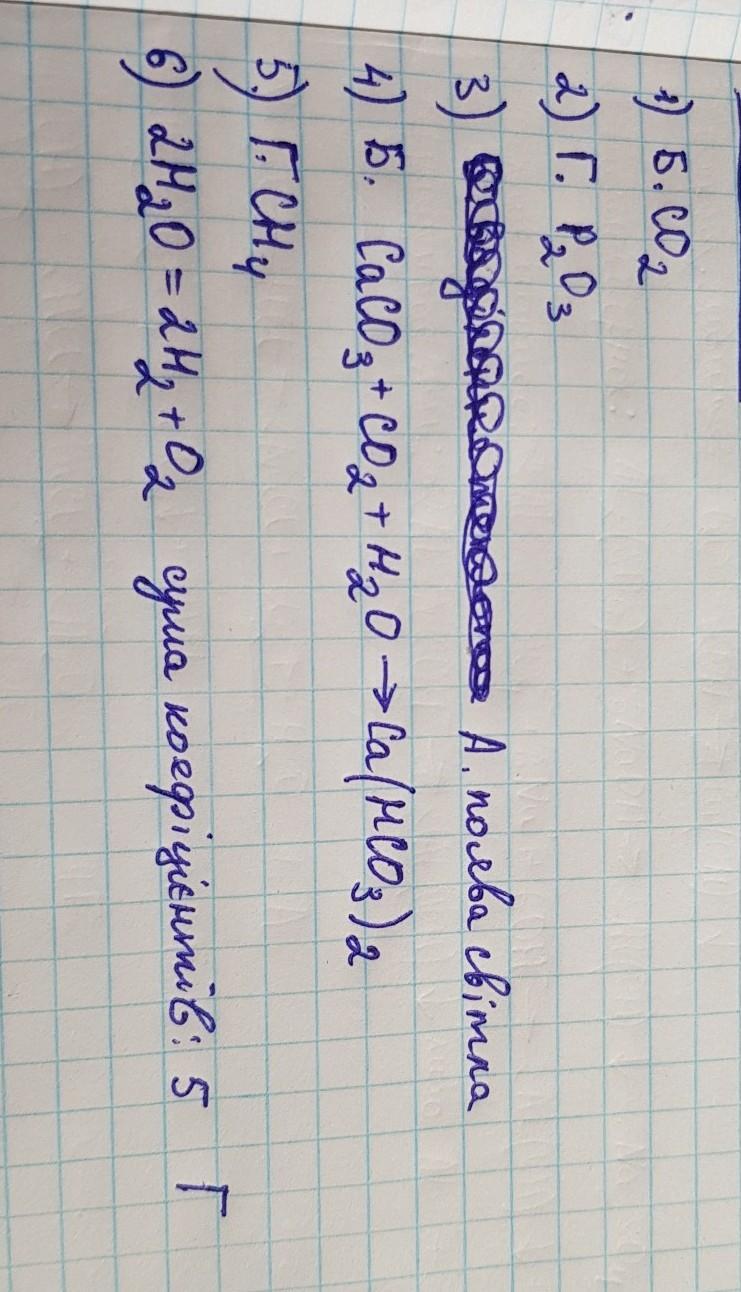 1) Б. CO2
2) Г. P2O3
3) А. поява світла
4) Б. CaCO3 + CO2 + H2O → Ca(HCO3)2
5.) Г. CH4
6) 2H2O = 2H2 + O2 сума коефіцієнтів: 5 Г